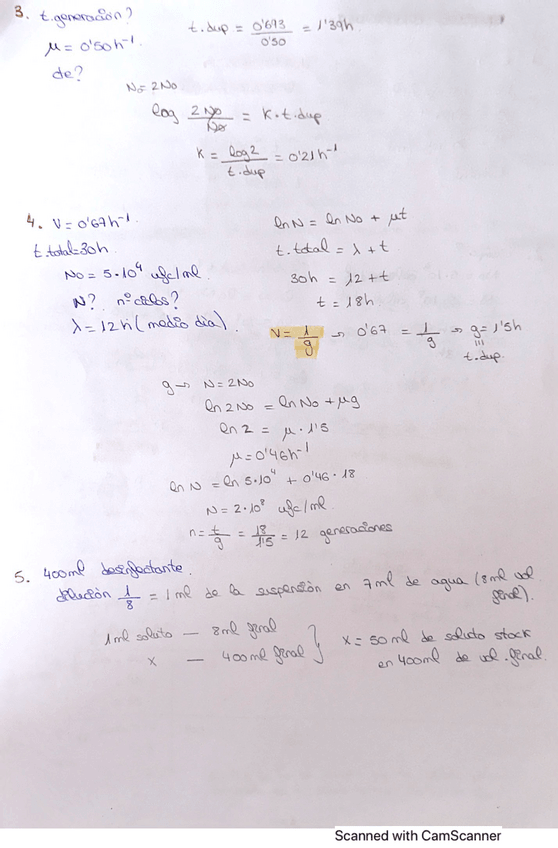 3. t.generación?
μ = 0'50h⁻¹
de?
t.dup = 0'693/0'50 = 1'39h
N = 2No
log 2No/No = K·t.dup
K = log2/t.dup = 0'21h⁻¹
4. V = 0'67h⁻¹
t.total=30h
No = 5·10⁴ ufc/ml
N? nº ciclos?
λ = 12h (medio día).
lnN = lnNo + μt
t.total = λ + t
30h = 12 + t
t = 18h
V = 1/g → 0'67 = 1/g → g = 1'5h
t.dup.
g → N = 2No
ln2No = lnNo + μg
ln2 = μ·1'5
μ = 0'46h⁻¹
lnN = ln5·10⁴ + 0'46·18
N = 2·10⁸ ufc/ml
n = t/g = 18/1'5 = 12 generaciones
5. 400ml desinfectante.
dilución 1/8 = 1ml de la suspensión en 7ml de agua (8ml vol final).
1ml soluto — 8ml final
x — 400ml final
x = 50ml de soluto stock
en 400ml de vol. final.
Scanned with CamScanner